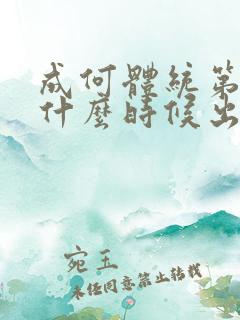 成何體統第
什麼時候出
宛玉
未經同意禁止轉載